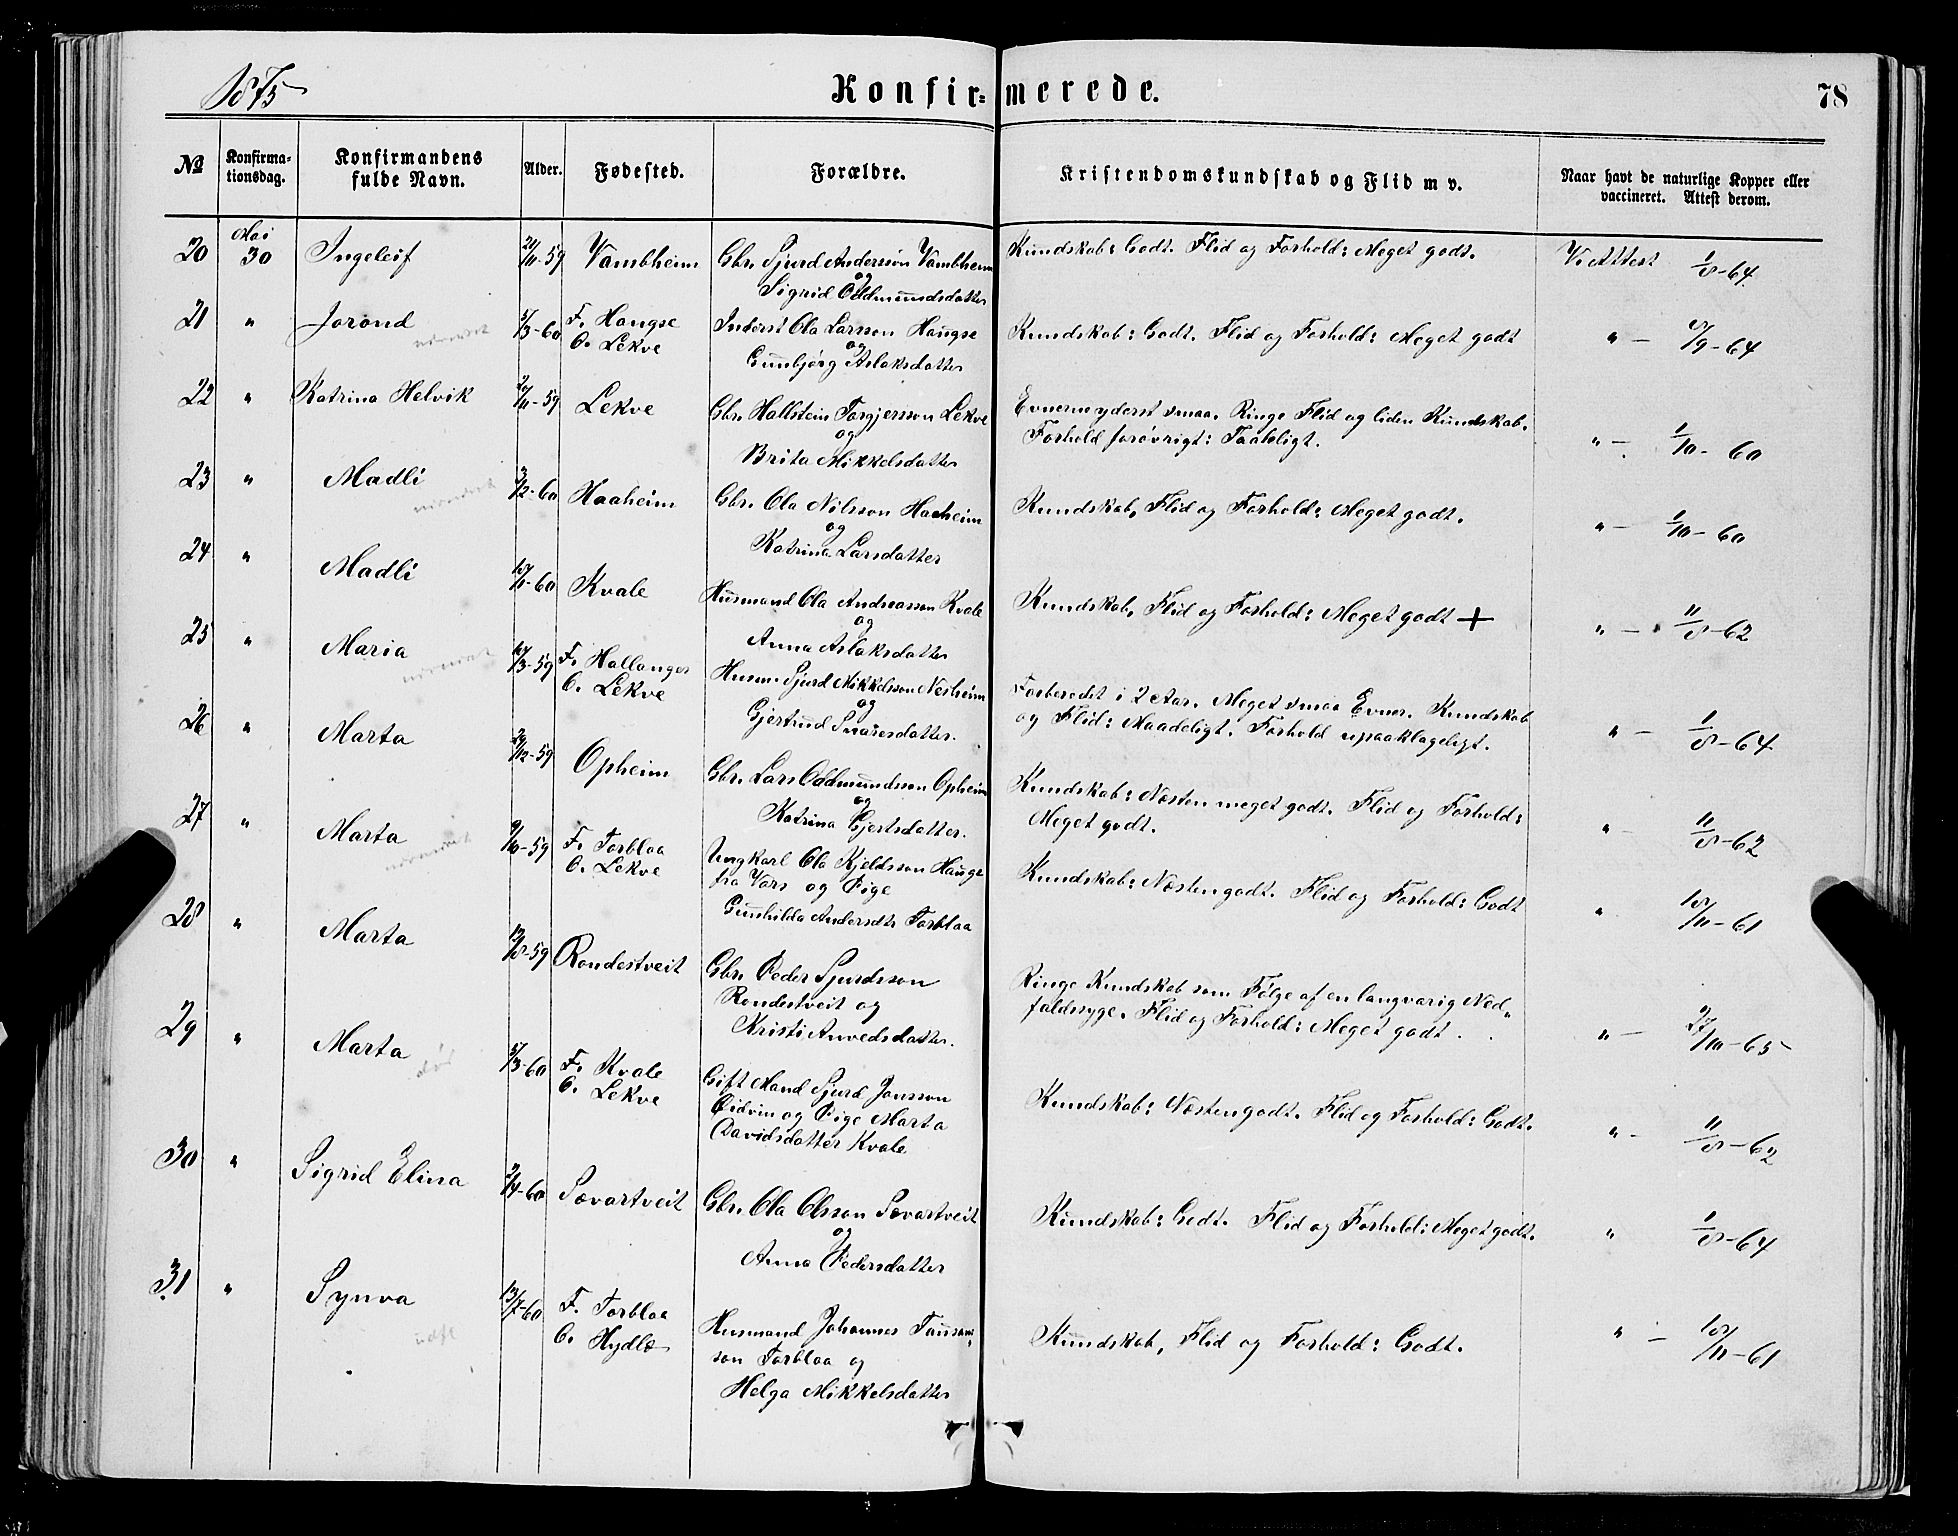 1875
Konfirmerede.
78
№
Konfirmationsdag.
Konfirmandens fulde Navn.
Alder.
Fødested.
Forældre.
Kristendomskundskab og Flid m v.
Naar havt de naturlige Kopper eller vaccineret. Attest derom.
20 Mai 30 Ingeleif 21/11-59 Vambheim Gbr. Sjurd Anderson Vambheim Kundskab: Godt. Flid og Forhold: Meget godt. V. Attest 1/8-64.
og
Sigrid Oddmundsdatter
21 " Jorond 5/3-60 F. Haugse Inderst Ola Larsson Haugse Kundskab: Godt. Flid og Forhold: Meget godt " — 8/9-64
O. Lekve og
Gunbjørg Aslaksdatter
22 " Katrina Helvik 20/11-59 Lekve Gbr. Hallstein Torgjersson Lekve Evnerne yderst smaa. Ringe Flid og liden Kundskab.
og Forhold forøvrigt: Taaleligt. " — 1/10-60
Brita Mikkelsdatter
23 " Madli 3/2-60 Haaheim Gbr. Ola Nilsson Haaheim Kundskab, Flid og Forhold: Meget godt. " — 1/10-60
og
Katrina Larsdatter
24 " Madli 18/1-60 Kvale Husmand Ola Andreasson Kvale Kundskab, Flid og Forhold: Meget godt + " — 11/8-62
og
Anna Aslaksdatter
25 " Maria F. Hallanger Husm. Sjurd Mikkelsson Nesheim Forberedt i 2 Aar. Meget smaa Evner. Kundskab
O. Lekve og og Flid: Maadeligt. Forhold upaaklageligt. " — 1/8-64
Gjertrud Snaresdatter.
26 " Marta 29/12-59 Opheim Gbr. Lars Oddmundsson Opheim Kundskab: Næsten meget godt. Flid og Forhold:
og Meget godt. " — 11/8-62
Katrina Gjertsdatter.
27 " Marta 9/10-59 F. Torblaa Ungkarl Ola Kjeldsson Hauge Kundskab: Næsten godt. Flid og Forhold: Godt " 18/11-61
O. Lekve fra Vors og Pige
Gunhilda Andersdtr Torblaa
28 " Marta 13/8-59 Rondestveit Gbr. Peder Sjurdsson Ringe Kundskab som Følge af en langvarig Ned-
Rondestveit og faldssyge. Flid og Forhold: Meget godt. " — 27/10-65
Kristi Anvedsdatter.
29 " Marta 5/3-60 F. Kvale Gift Mand Sjurd Jonsson Kundskab: Næsten godt. Flid og Forhold: Godt. " — 11/8-62
O. Lekve Eidvin og Pige Marta
Davidsdatter Kvale
30 " Sigrid Elina 2/4-60 Sævartveit Gbr. Ola Olsson Sævartveit Kundskab: Godt. Flid og Forhold: Meget godt. " 1/8-64
og
Anna Pedersdatter
31 " Synva 13/7-60 F. Torblaa Husmand Johannes Kundskab, Flid og Forhold: Godt. " — 18/11-61
O. Hydle son Torblaa og
Helga Mikkelsdatter